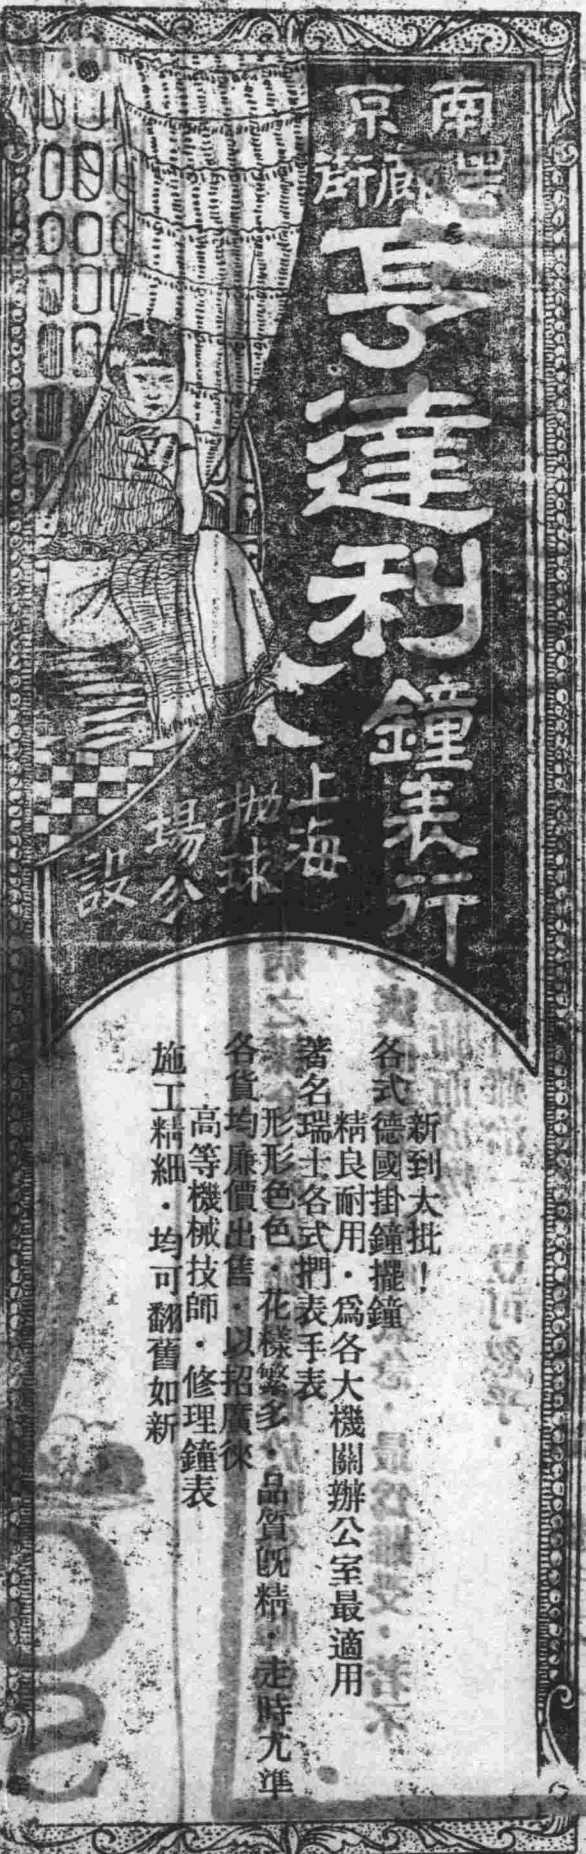 南京
黑廊街
亨達利
鐘表行
上海
抛球
場分
設
新到大批！
各式德國掛鐘擺鐘
精良耐用·爲各大機關辦公室最適用
著名瑞士各式捫表手表
形形色色·花樣繁多·品質旣精·走時尤準
各貨均廉價出售·以招廣徠
高等機械技師·修理鐘表
施工精細·均可翻舊如新